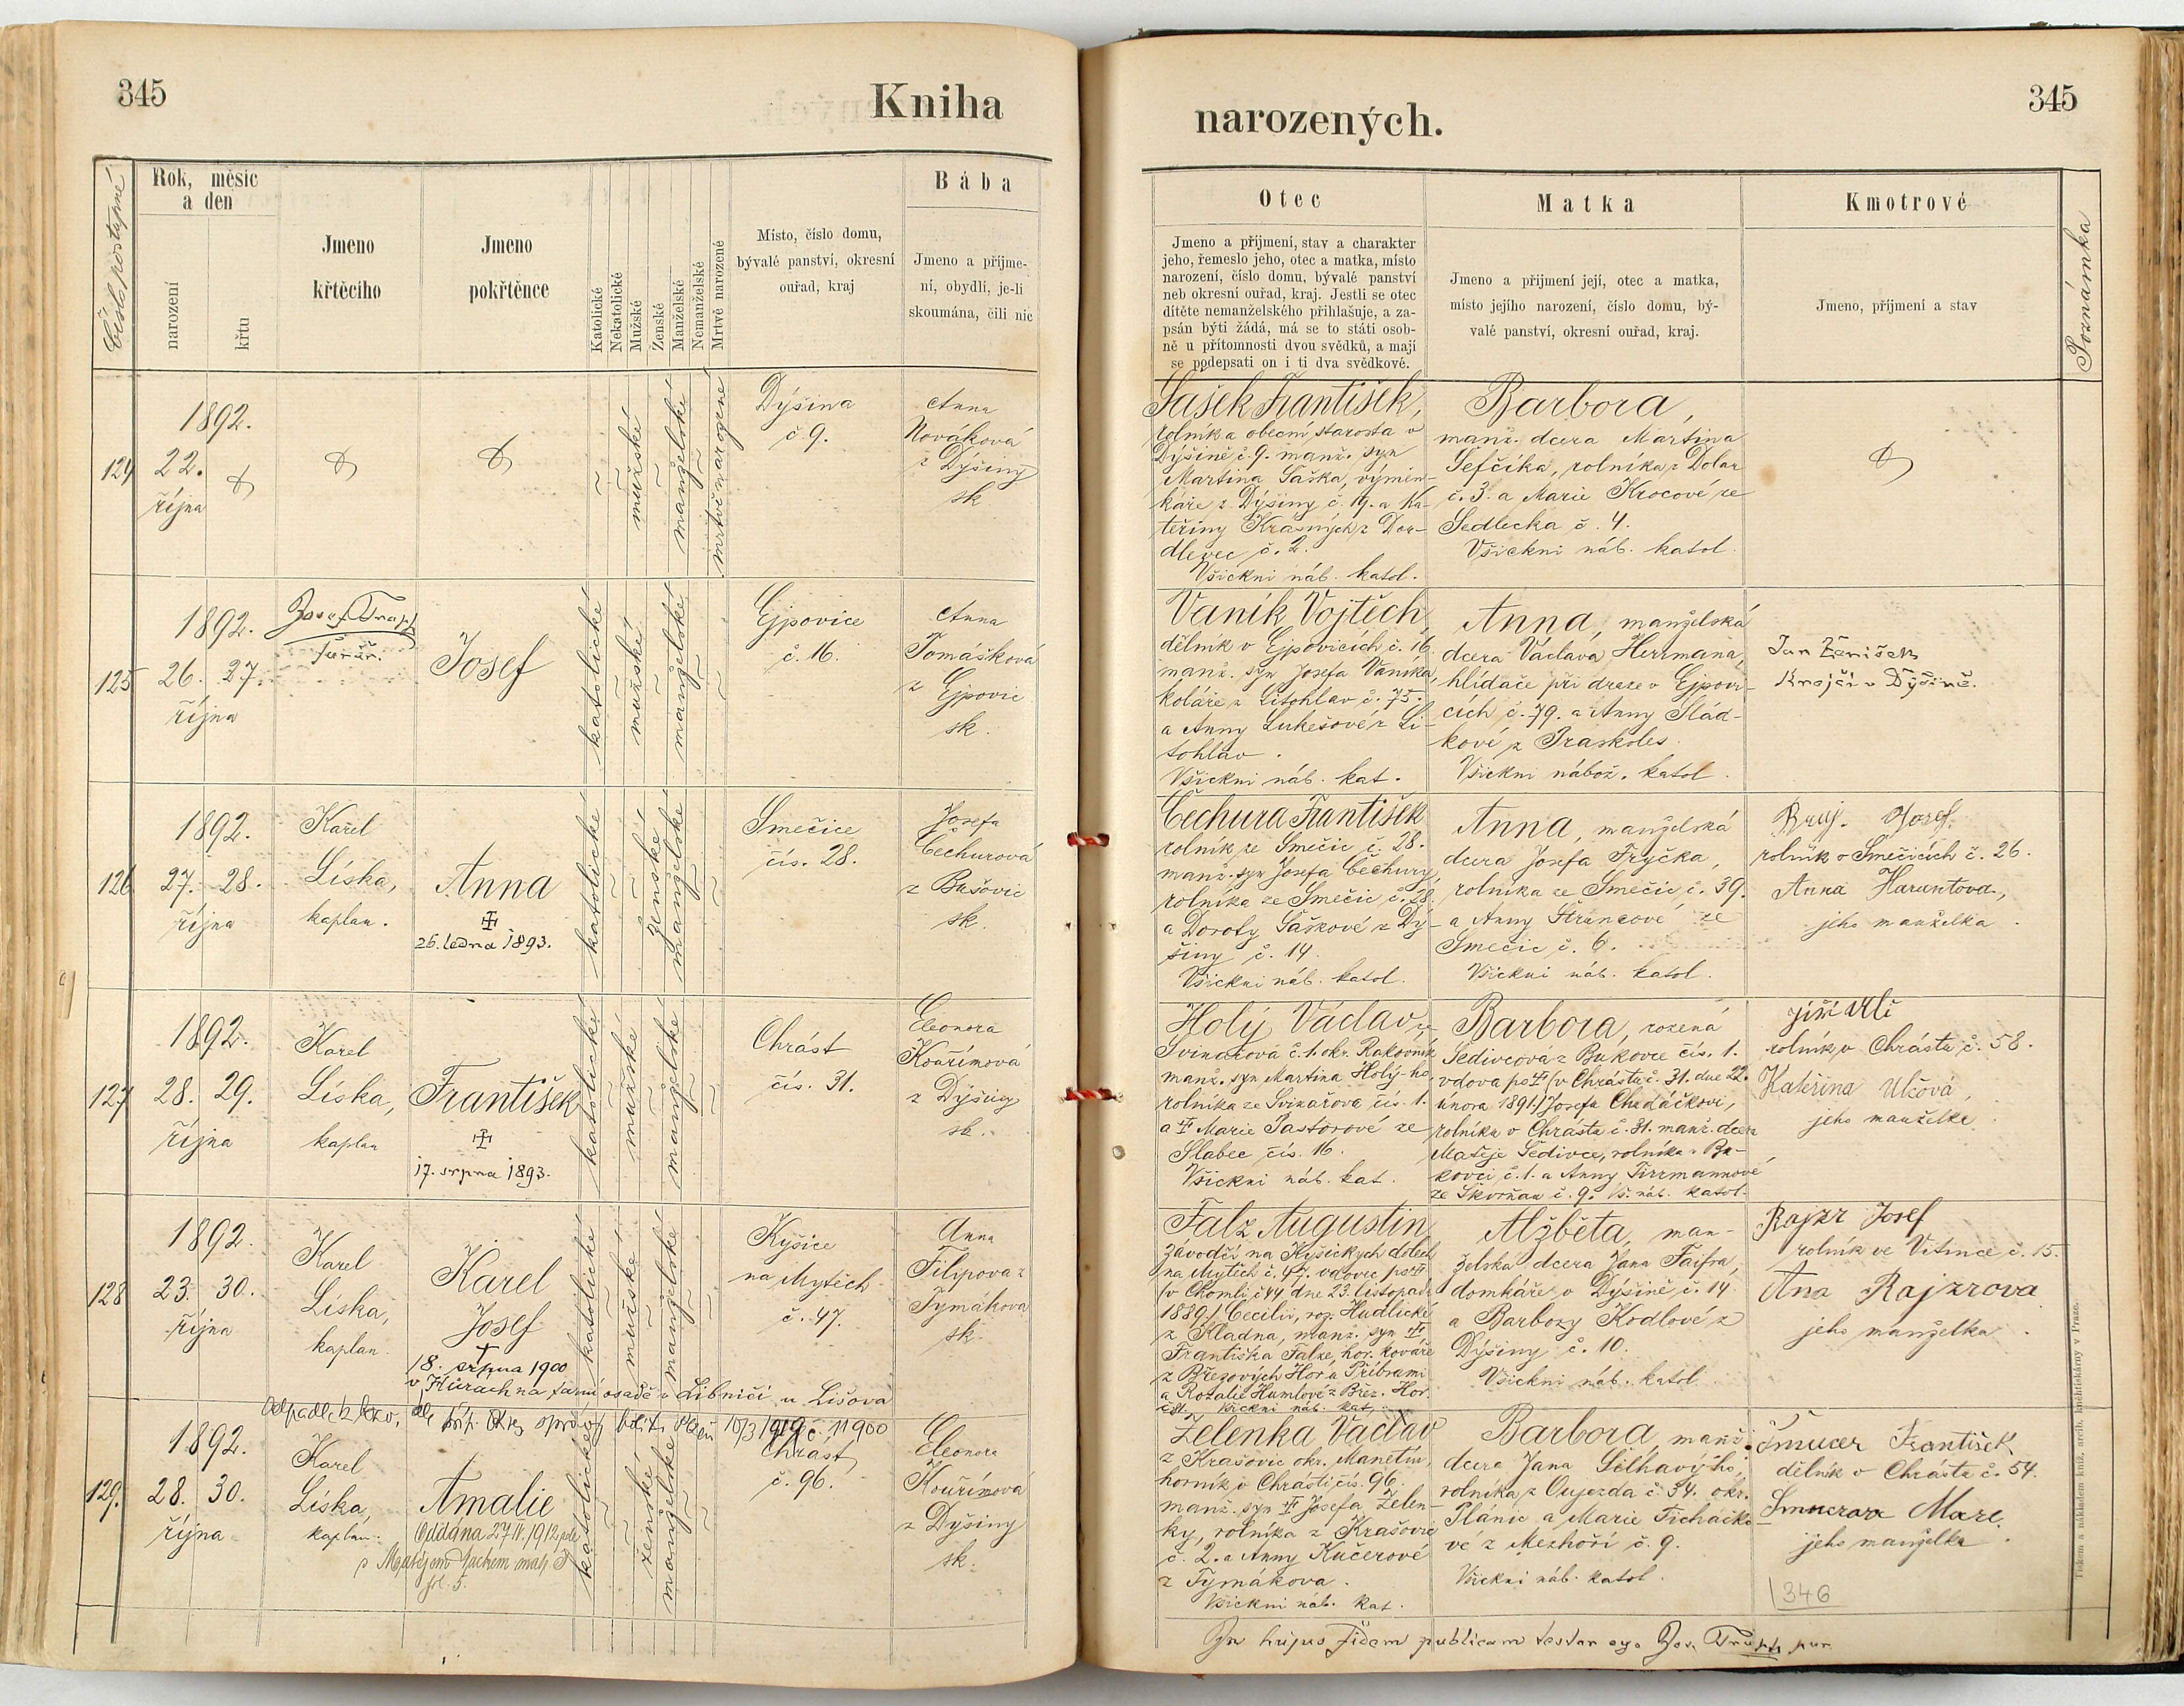 345
Kniha
Číslo postupné
Rok, měsíc
a den
narození
křtu
Jmeno
křtěcího
Jmeno
pokřtěnce
Katolické
Nekatolické
Mužské
Ženské
Manželské
Nemanželské
Mrtvě narozené
Místo, číslo domu,
bývalé panství, okresní
ouřad, kraj
Bába
Jmeno a příjme-
ní, obydlí, je-li
skoumána, čili nic
124
1892.
22.
října
mužské
manželské
mrtvě narozené
Dýšina
č. 9.
Anna
Nováková
z Dýšiny
sk.
125
1892.
26. 27.
října
Josef
farář.
Josef
katolické
mužské
manželské
Ejpovice
č. 16.
Anna
Tomášková
z Ejpovic
sk.
126
1892.
27. 28.
října
Karel
Líska,
kaplan.
Anna
26. ledna 1893.
katolické
ženské
manželské
Smečice
čís. 28.
Josefa
Čechurová
z Bušovic
sk.
127
1892.
28. 29.
října
Karel
Líska,
kaplan
František
17. srpna 1893.
katolické
mužské
manželské
Chrást
čís. 31.
Eleonora
Kouřímová
z Dýšiny
sk.
128
1892.
23. 30.
října
Karel
Líska,
kaplan
Karel
Josef
18. srpna 1900
v Hůrách na farní osadě v Libníči u Lišova
katolické
mužské
manželské
Kyšice
na Mýtech
č. 47.
Anna
Filipova z
Tymákova
sk.
10/3 1919 č. 11900
129.
1892.
28. 30.
října
Karel
Líska,
kaplan.
Amalie
Oddána 27/IV. 1912
s Matějem
fol. 5.
katolické
ženské
manželské
Chrást
č. 96.
Eleonora
Kouřímova
z Dýšiny
sk.
345
narozených.
Otec
Jmeno a příjmení, stav a charakter
jeho, řemeslo jeho, otec a matka, místo
narození, číslo domu, bývalé panství
neb okresní ouřad, kraj. Jestli se otec
dítěte nemanželského přihlašuje, a za-
psán býti žádá, má se to státi osob-
ně u přítomnosti dvou svědků, a mají
se podepsati on i ti dva svědkové.
Matka
Jmeno a příjmení její, otec a matka,
místo jejího narození, číslo domu, bý-
valé panství, okresní ouřad, kraj.
Kmotrové
Jmeno, příjmení a stav
Poznámka
Šašek František,
rolník a obecní starosta v
Dýšině č. 9. manž. syn
Martina Šaška, výmin-
káře z Dýšiny č. 19. a Ka-
teřiny Krásných z Dor-
dlevec č. 2.
Všickni náb. katol.
Barbora,
manž. dcera Martina
Šefčíka, rolníka z Dolan
č. 3. a Marie Krocové ze
Sedlecka č. 4.
Všickni náb. katol.
Vaník Vojtěch,
dělník v Ejpovicích č. 16.
manž. syn Josefa Vaníka,
koláře z Litohlav č. 75.
a Anny Lukešové z Li-
tohlav.
Všickni náb. kat.
Anna, manželská
dcera Václava Heřmana,
hlídače při dráze v Ejpovi-
cích č. 79. a Anny Slád-
kové z Praskoles.
Všickni nábož. katol.
Jan Ženíšek
Krejčí v Dýšině.
Čechura František
rolník ze Smečic č. 28.
manž. syn Josefa Čechury,
rolníka ze Smečic č. 28.
a Doroty Šaškové z Dý-
šiny č. 14.
Všickni náb. katol.
Anna, manželská
dcera Josefa Fryčka,
rolníka ze Smečic č. 39.
a Anny ze
Smečic č. 6.
Všickni náb. katol.
Josef,
rolník v Smečicích č. 26.
Anna
jeho manželka.
Holý Václav ze
Svinařová č. 1. okr. Rakovník
manž. syn Martina Holý-ho
rolníka ze Svinařova čís. 1.
a Marie Pastorové ze
Slabec čís. 16.
Všickni náb. kat.
Barbora, rozená
Šedivcová z Bukovce čís. 1.
vdova po (v Chrástu č. 31. dne 22.
února 1891.) Josefu
rolníku v Chrástu č. 31. manž. dcera
Matěje Šedivce, rolníka v Bu-
kovci č. 1. a Anny Tirrmannové
ze Škvrňan č. 9. Vš. náb. katol.
Jiří Ulč
rolník v Chrástu č. 58.
Kateřina Ulčová,
jeho manželka
Falz Augustin
závodčí na Kyšických dolech
na Mýtech č. 47. vdovec po
(v Chomli č. 44 dne 23. listopadu
1889.) Cecilii, roz. Hudlické
z Kladna, manž. syn
Františka Falze, hor. kováře
z Březových Hor u Příbrami
a Rozalie Humlové z Břez. Hor
Všickni náb. kat.
Alžběta, man-
želská dcera Jana Faifra,
domkáře v Dýšině č. 14.
a Barbory Kodlové z
Dýšiny č. 10.
Všickni náb. katol.
Rajzr Josef
rolník ve Vitince č. 15.
Ana Rajzrova
jeho manželka.
Zelenka Václav
z Krašovic okr. Manetín,
horník v Chrásti čís. 96.
manž. syn Josefa Zelen-
ky, rolníka z Krašovic
č. 2. a Anny Kučerové
z Tymákova.
Všickni náb. kat.
Barbora, manž.
dcera Jana Šilhavýho,
rolníka z Oujezda č. 34. okr.
Plánic a Marie Ticháčko-
vé z Mezhoří č. 9.
Všickni náb. katol.
František
dělník v Chrástu č. 54.
Marie
jeho manželka.
346
In hujus fidem publicam testor ego
Tiskem a nákladem kníž. arcib. knihtiskárny v Praze.